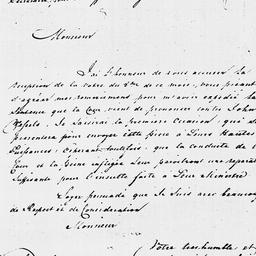 Monsieur
J'ai l'honneur de vous accuser la
reception de la votre du 8me de ce mois, vous priant
d'agréer mes remerciments pour m'avoir expedié la
Sentence que la Cour vient de prononcer contre John
Je saisirai la premiere occasion, qui se
presentera pour envoyer cette piece à Leurs Hautes
Puissances; esperant toutefois, que la conduite de la
Cour et la peine infligée leur paroitront une reparation
suffisante pour l'insulte faite à leur Ministre
Soyez persuadé que Je suis avec beaucoup
de Respect et de Consideration
Monsieur
Votre tres humble et